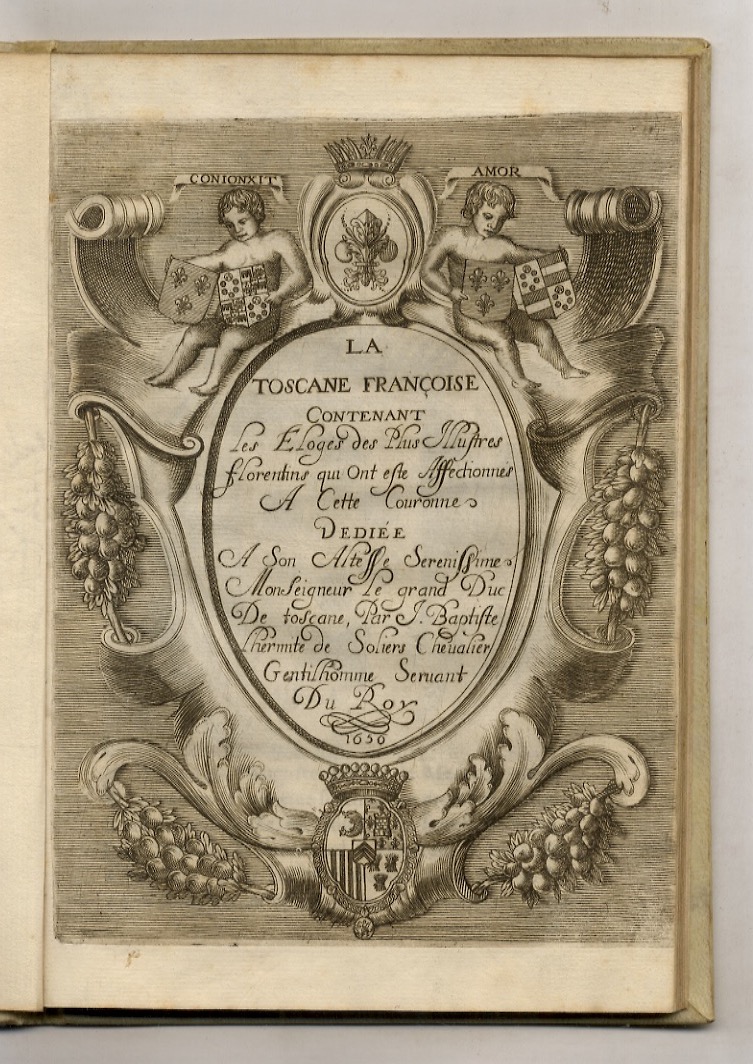 CONIONXIT
AMOR
LA
TOSCANE FRANÇOISE
CONTENANT
Les Eloges des Plus Illustres
florentins qui Ont este Affectionnés
A Cette Couronne
DEDIÉE
A Son Altesse Serenissime
Monseigneur Le grand Duc
De toscane, Par J. Baptiste
lhermite de Soliers Cheualier
Gentilhomme Seruant
Du Roy
1656